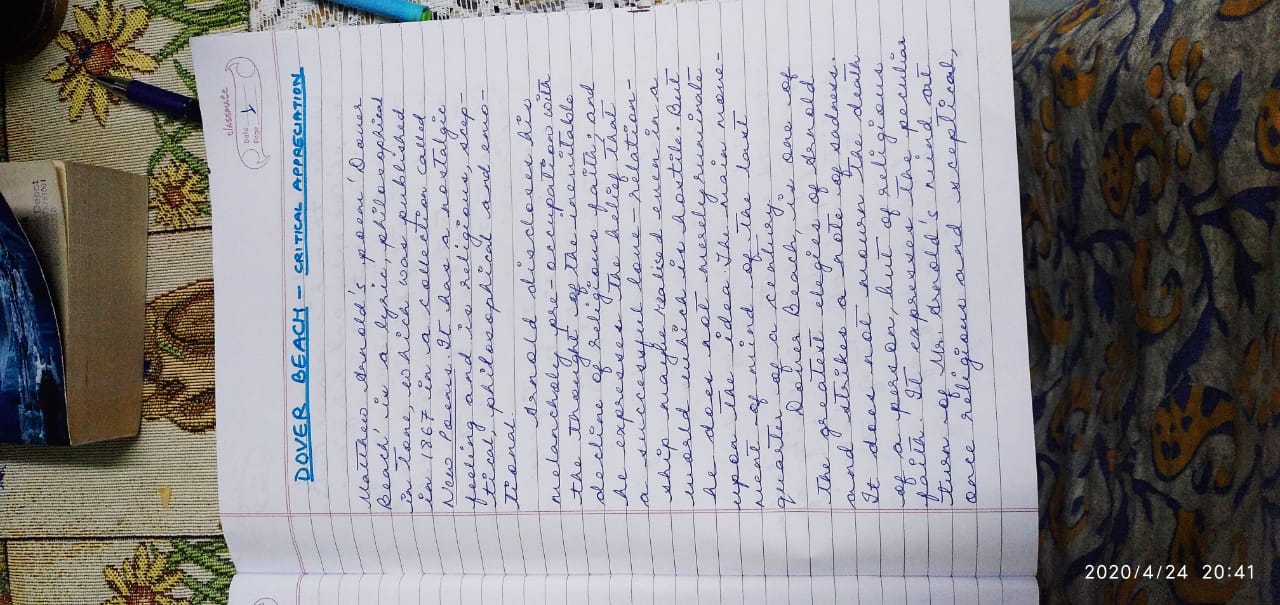 classmate
Date
Page 1
DOVER BEACH - CRITICAL APPRECIATION
Matthew Arnold's poem 'Dover
Beach' is a lyric, philosophical
in tone, which was published
in 1867 in a collection called
New Poems. It has a nostalgic
feeling and is religious, scep-
tical, philosophical and emo-
tional.
Arnold discloses his
melancholy pre-occupation with
the thought of the inevitable
decline of religious faith; and
he expresses the belief that
a successful love-relation-
ship maybe realised even in a
world which is hostile. But
he does not merely ruminate
upon the idea. The main move-
ment of mind of the last
quarter of a century.
Dover Beach, is one of
the greatest elegies of Arnold
and strikes a note of sadness.
It does not mourn the death
of a person, but of religious
faith. It expresses the peculiar
turn of Mr. Arnold's mind, at
once religious and sceptical,
Depot
2020/4/24 20:41